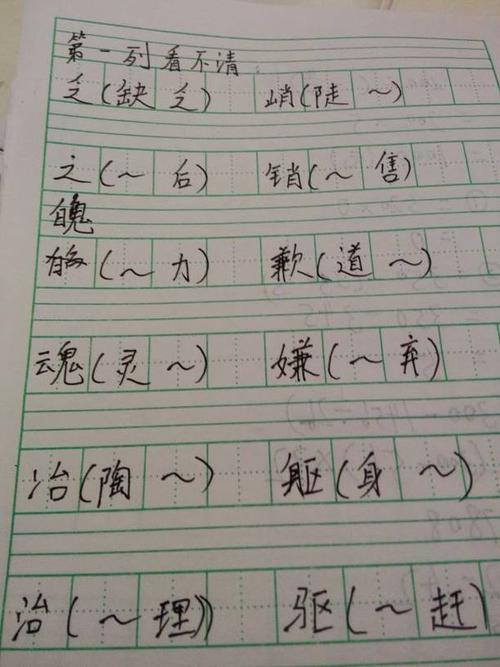 第一列看不清：
乏(缺乏) 峭(陡～)
之(～后) 销(～售)
魄
魄(～力) 歉(道～)
魂(灵～) 嫌(～弃)
冶(陶～) 躯(身～)
治(～理) 驱(～赶)